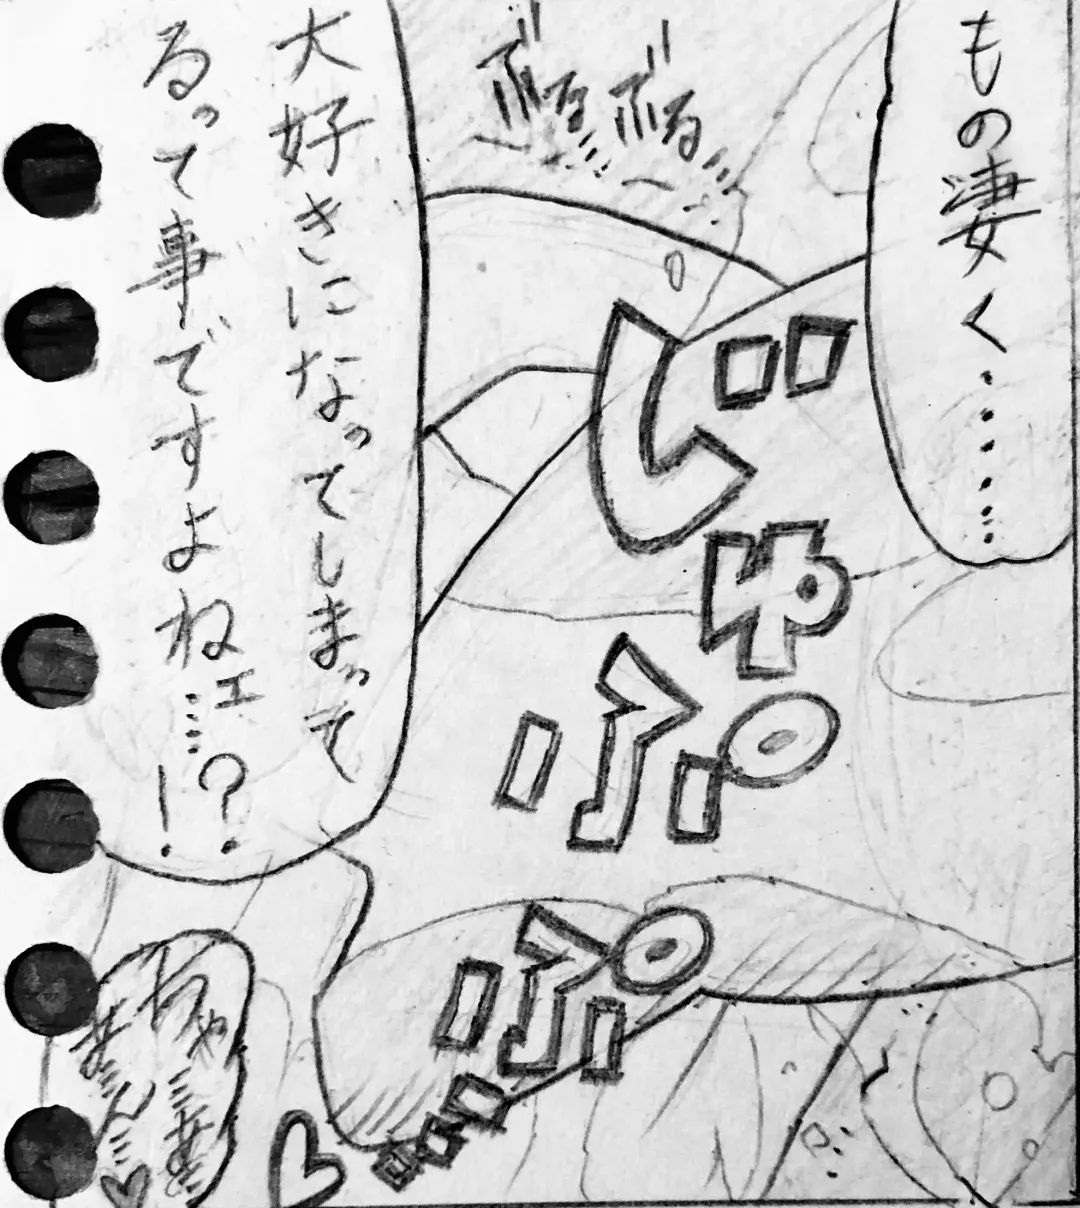 もの凄く………
ぶるぶる…
じゅぷぷ…
大好きになってしまって
るって事ですよねェ……!?